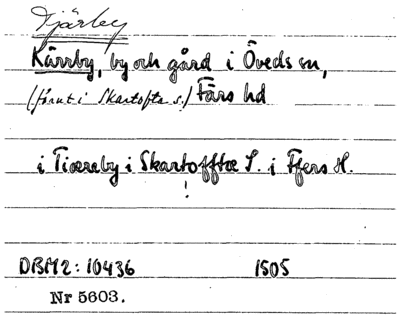 Tjärby
Kärrby, by och gård i Öveds sn,
(förut i Skartofta s.) Färs hd
i Tiæreby i Skartofftæ S. i Ffers H.
!
DBM2: 10436 1505
Nr 5603.